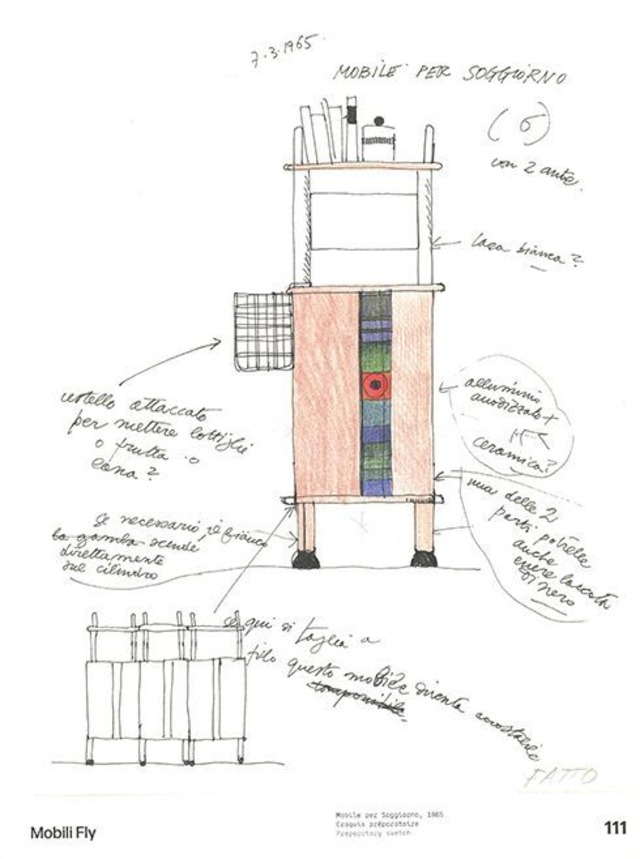 7.3.1965
MOBILE PER SOGGIORNO
(6)
con 2 ante.
laca bianca?
alluminio
anodizzato +
ceramica?
cestello attaccato
per mettere bottiglie
o frutta o
lana?
una delle 2
parti potrebbe
anche
essere laccata
di nero
se necessario, è fianco
la gamba scende
direttamente
sul cilindro
se qui si taglia a
filo questo mobile diventa accostabile
componibile
FATTO
Mobile per Soggiorno, 1965
Croquis préparatoire
Preparatory sketch
Mobili Fly
111